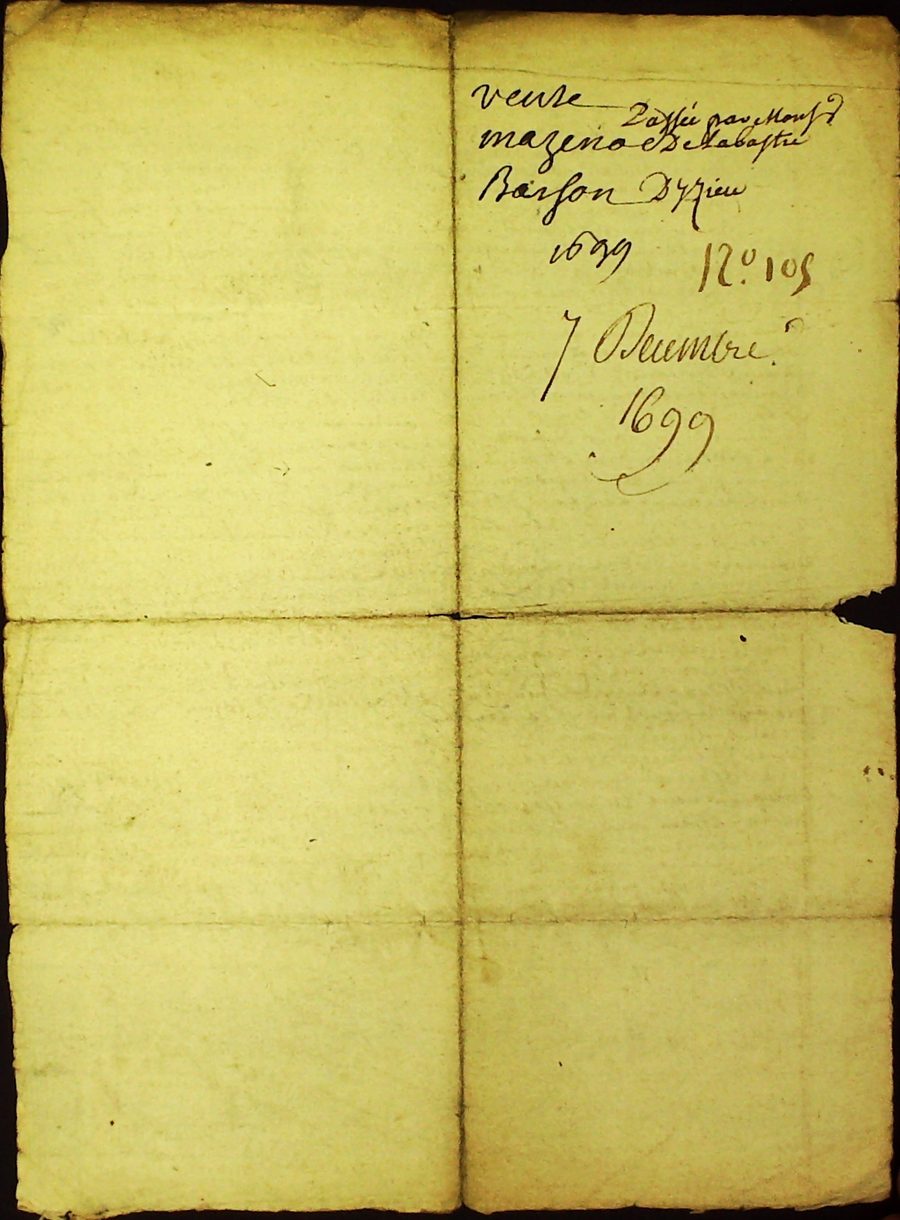 vente
passée par Monsr
mazenod De Labastie
Barson Dyzieu
1699
N.º 105
7 Decembre
1699